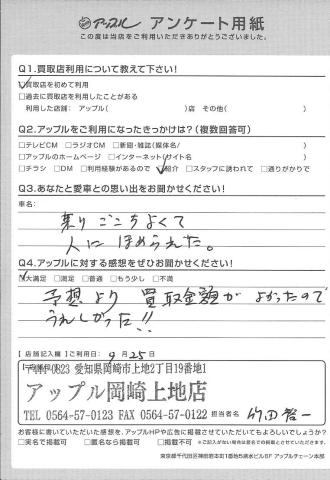 アップル アンケート用紙
この度は当店をご利用いただきありがとうございました。
Q1.買取店利用について教えて下さい!
□買取店を初めて利用
□過去に買取店を利用したことがある
利用した店舗: アップル( )店 その他( )
Q2.アップルをご利用になったきっかけは?(複数回答可)
□テレビCM □ラジオCM □新聞・雑誌(媒体名/ )
□アップルのホームページ □インターネット(サイト名 )
□チラシ □DM □利用経験があるので □紹介 □スタッフに誘われて □通りがかりで
Q3.あなたと愛車との思い出をお聞かせください!
車名:
乗りごこちよくて
人にほめられた。
Q4.アップルに対する感想をぜひお聞かせください!
□大満足 □満足 □普通 □もう少し □不満
予想より買取金額がよかったので
うれしかった!!
【店舗記入欄】ご利用日: 9月25日
〒444-0823 愛知県岡崎市上地2丁目19番地1
アップル岡崎上地店
TEL 0564-57-0123 FAX 0564-57-0122
担当者名
お客様に書いていただいた感想を、アップルHPや広告に掲載させていただいてもよろしいでしょうか?
□実名で掲載可 □匿名なら掲載可 □掲載不可 ※ご記入がない場合は匿名での掲載とさせていただきます。